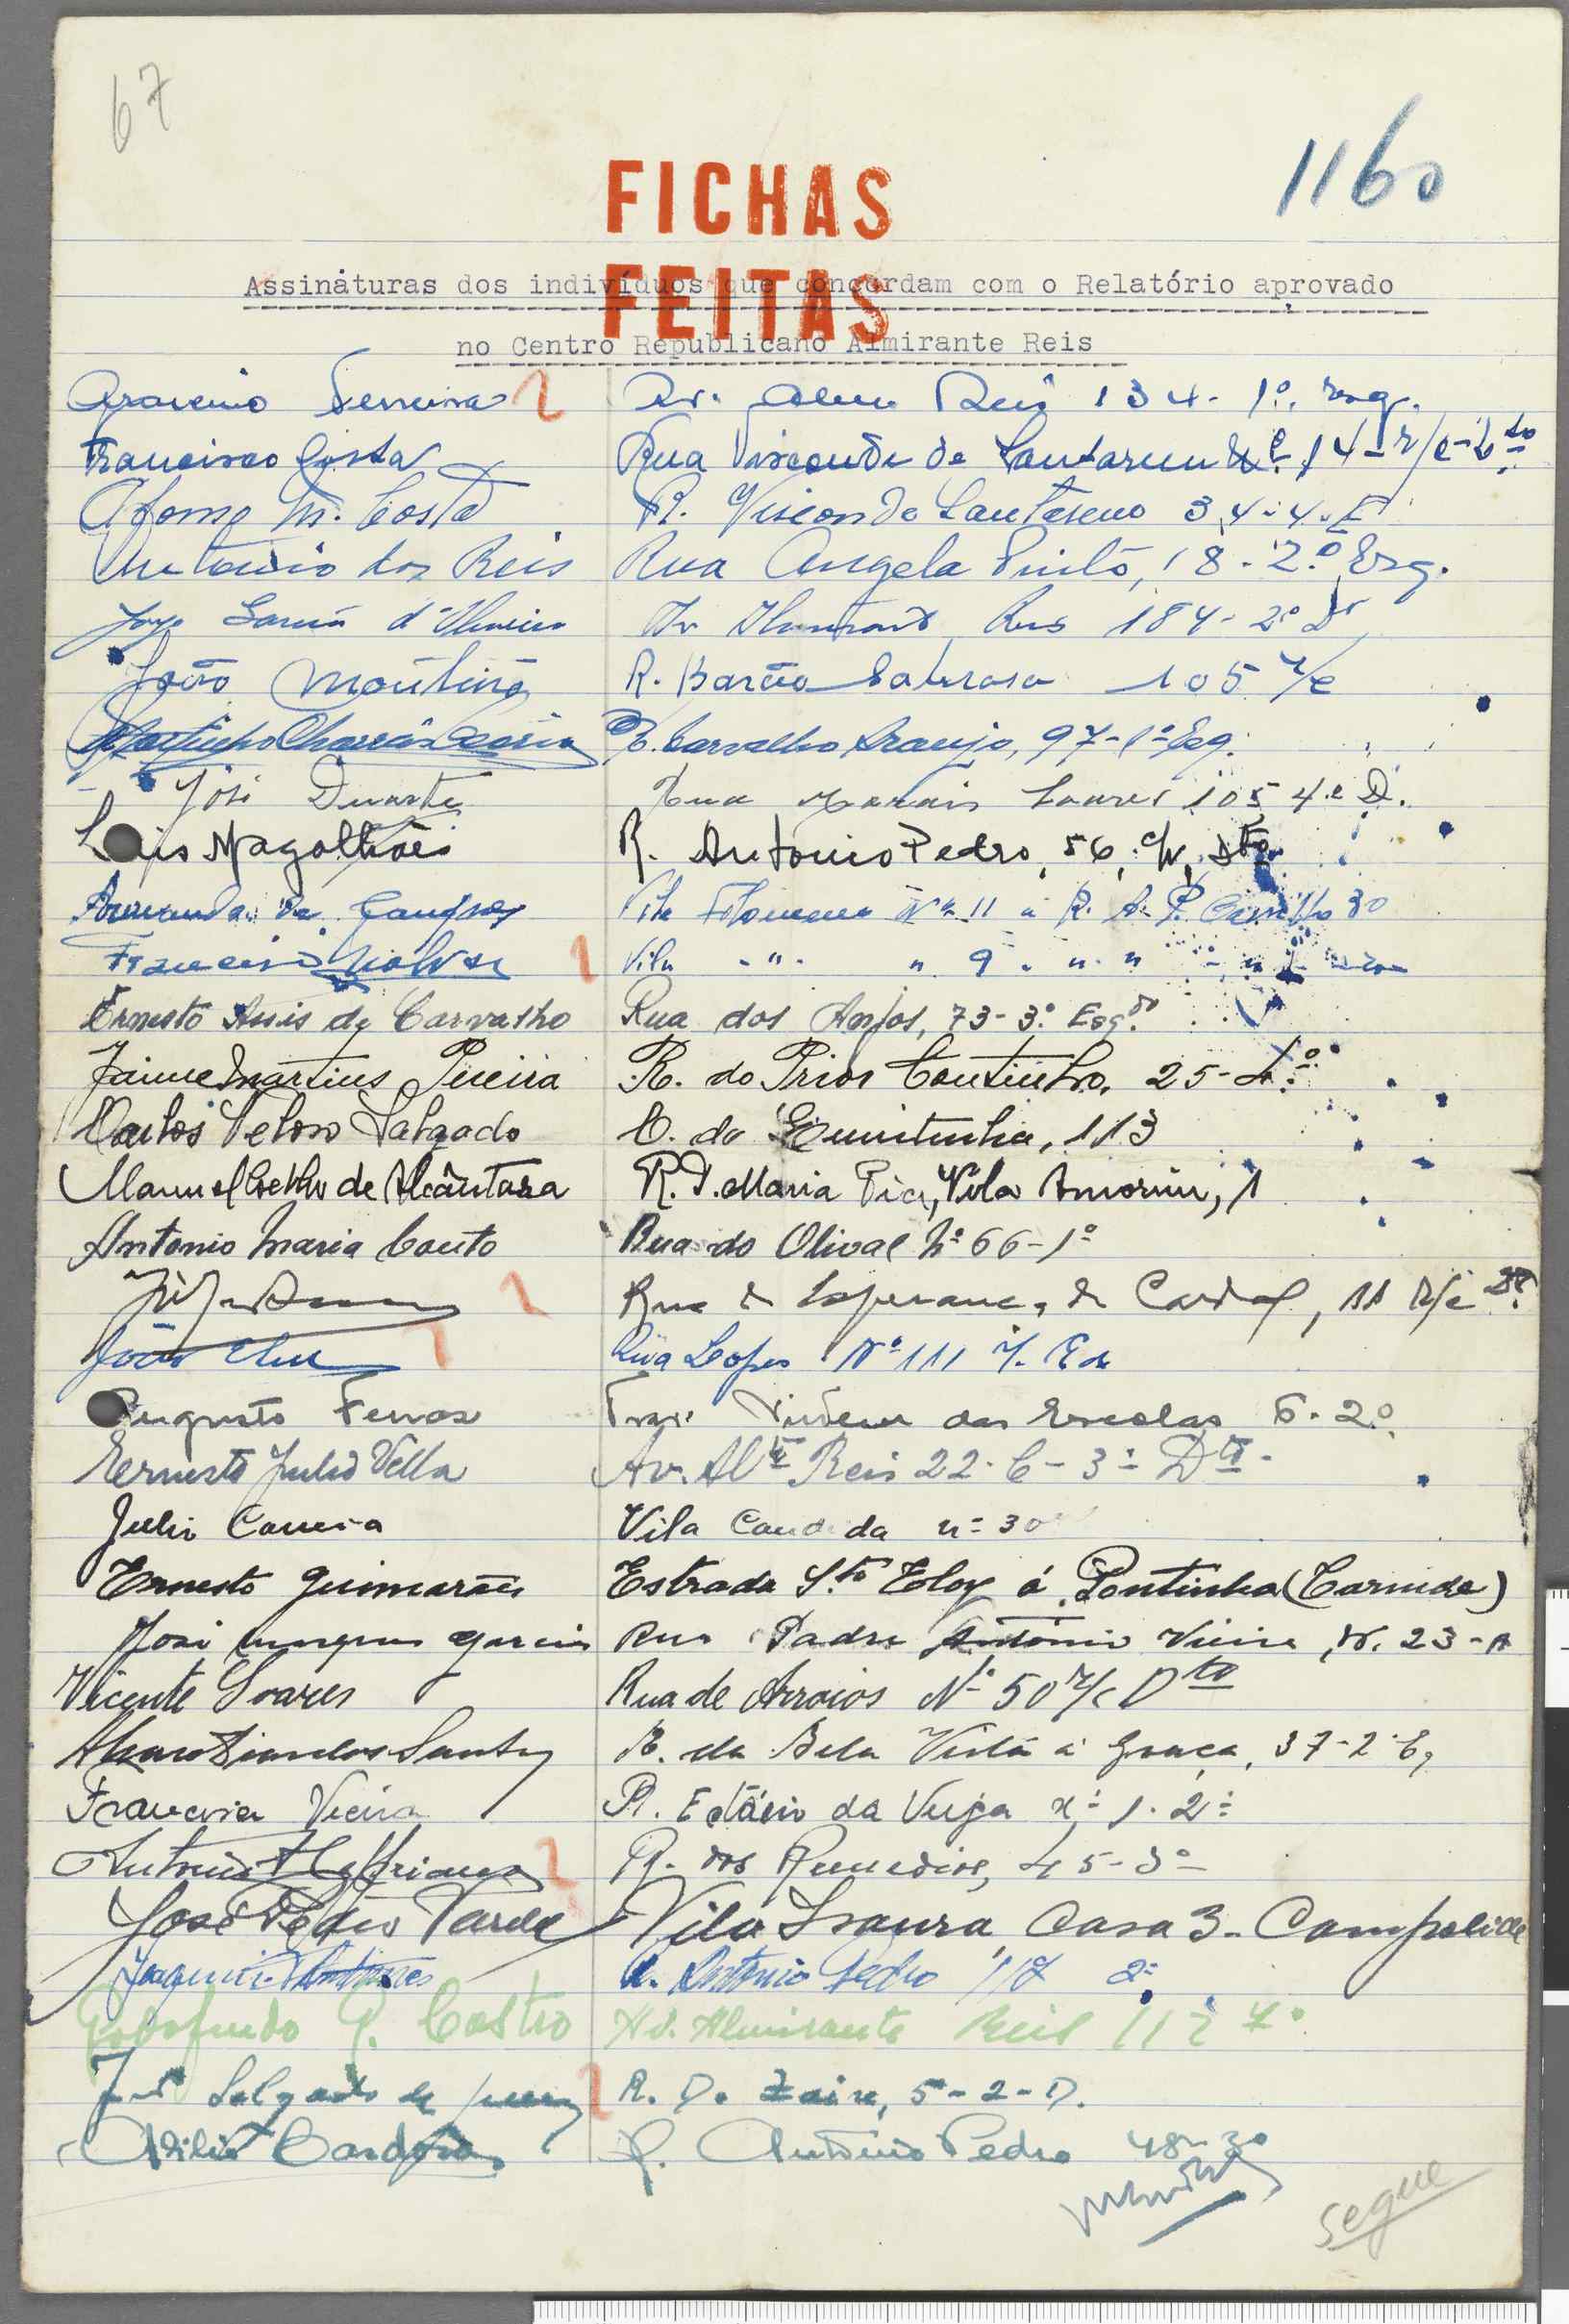 67
1160
FICHAS
FEITAS
Assinaturas dos indivíduos que concordam com o Relatório aprovado
no Centro Republicano Almirante Reis
Ferreira Av. Alm. Reis 134 - 1º. esq.
Francisco Costa Rua Visconde de Santarem 14 - r/c - Dto
Afonso M. Costa R. Visconde Santareno 34 - 4 - E
Antonio dos Reis Rua Angela Pinto, 18 - 2º Esq.
d'Oliveira Av Almirante Reis 184 - 2º Dº
João Moutinho R. Barão Sabrosa 105 r/c
R. Carvalho Araujo, 97 - 1º Esq.
José Duarte Rua Morais Soares 105 4.º D.
Luis Magalhães R. Antonio Pedro, 56, c/v, Dto
Vila Filomena Nº 11 à R. A. P. Carrilho 30
Francisco Vila " " 9
Ernesto Assis de Carvalho Rua dos Anjos, 73 - 3.º Esq.do
Jaime Martins Pereira R. do Prior Coutinho, 25 - 4.º
Carlos Veloso Salgado C. da Quintinha, 113
Manuel Coelho de Alcântara R. D. Maria Pia, Vila Amorim, 1
Antonio Maria Couto Rua do Olival Nº 66 - 1º
Rua da Esperança do Cardal, 11 R/c Dº
João Rua Lopes Nº 111
Augusto Ferraz das Escolas 6 - 2º
Ernesto Julio Vella Av. Alte Reis 22 - C - 3º Dto
Julio Correia Vila Candida nº 30
Ernesto Guimarães Estrada Sto Eloy á Pontinha (Carnide)
José Marques Garcia Rua Padre António Vieira, Nº 23 - A
Vicente Soares Rua de Arroios Nº 50 r/c Dto
Alvaro Dias dos Santos R. da Bela Vista à Graça, 37 - 2º E,
Vieira R. Estácio da Veiga nº 1 - 2º
Antonio R. dos Remedios, 45 - 3º
José Pedro Tarde Vila Isaura, Casa 3 - Campolide
Joaquim Antunes R. Antonio Pedro 117 2º
P. Castro Av. Almirante Reis 112 4º
Salgado de R. Do Zaire, 5 - 2 - D.
Abilio Cardoso R. Antonio Pedro 48 - 3º
Segue